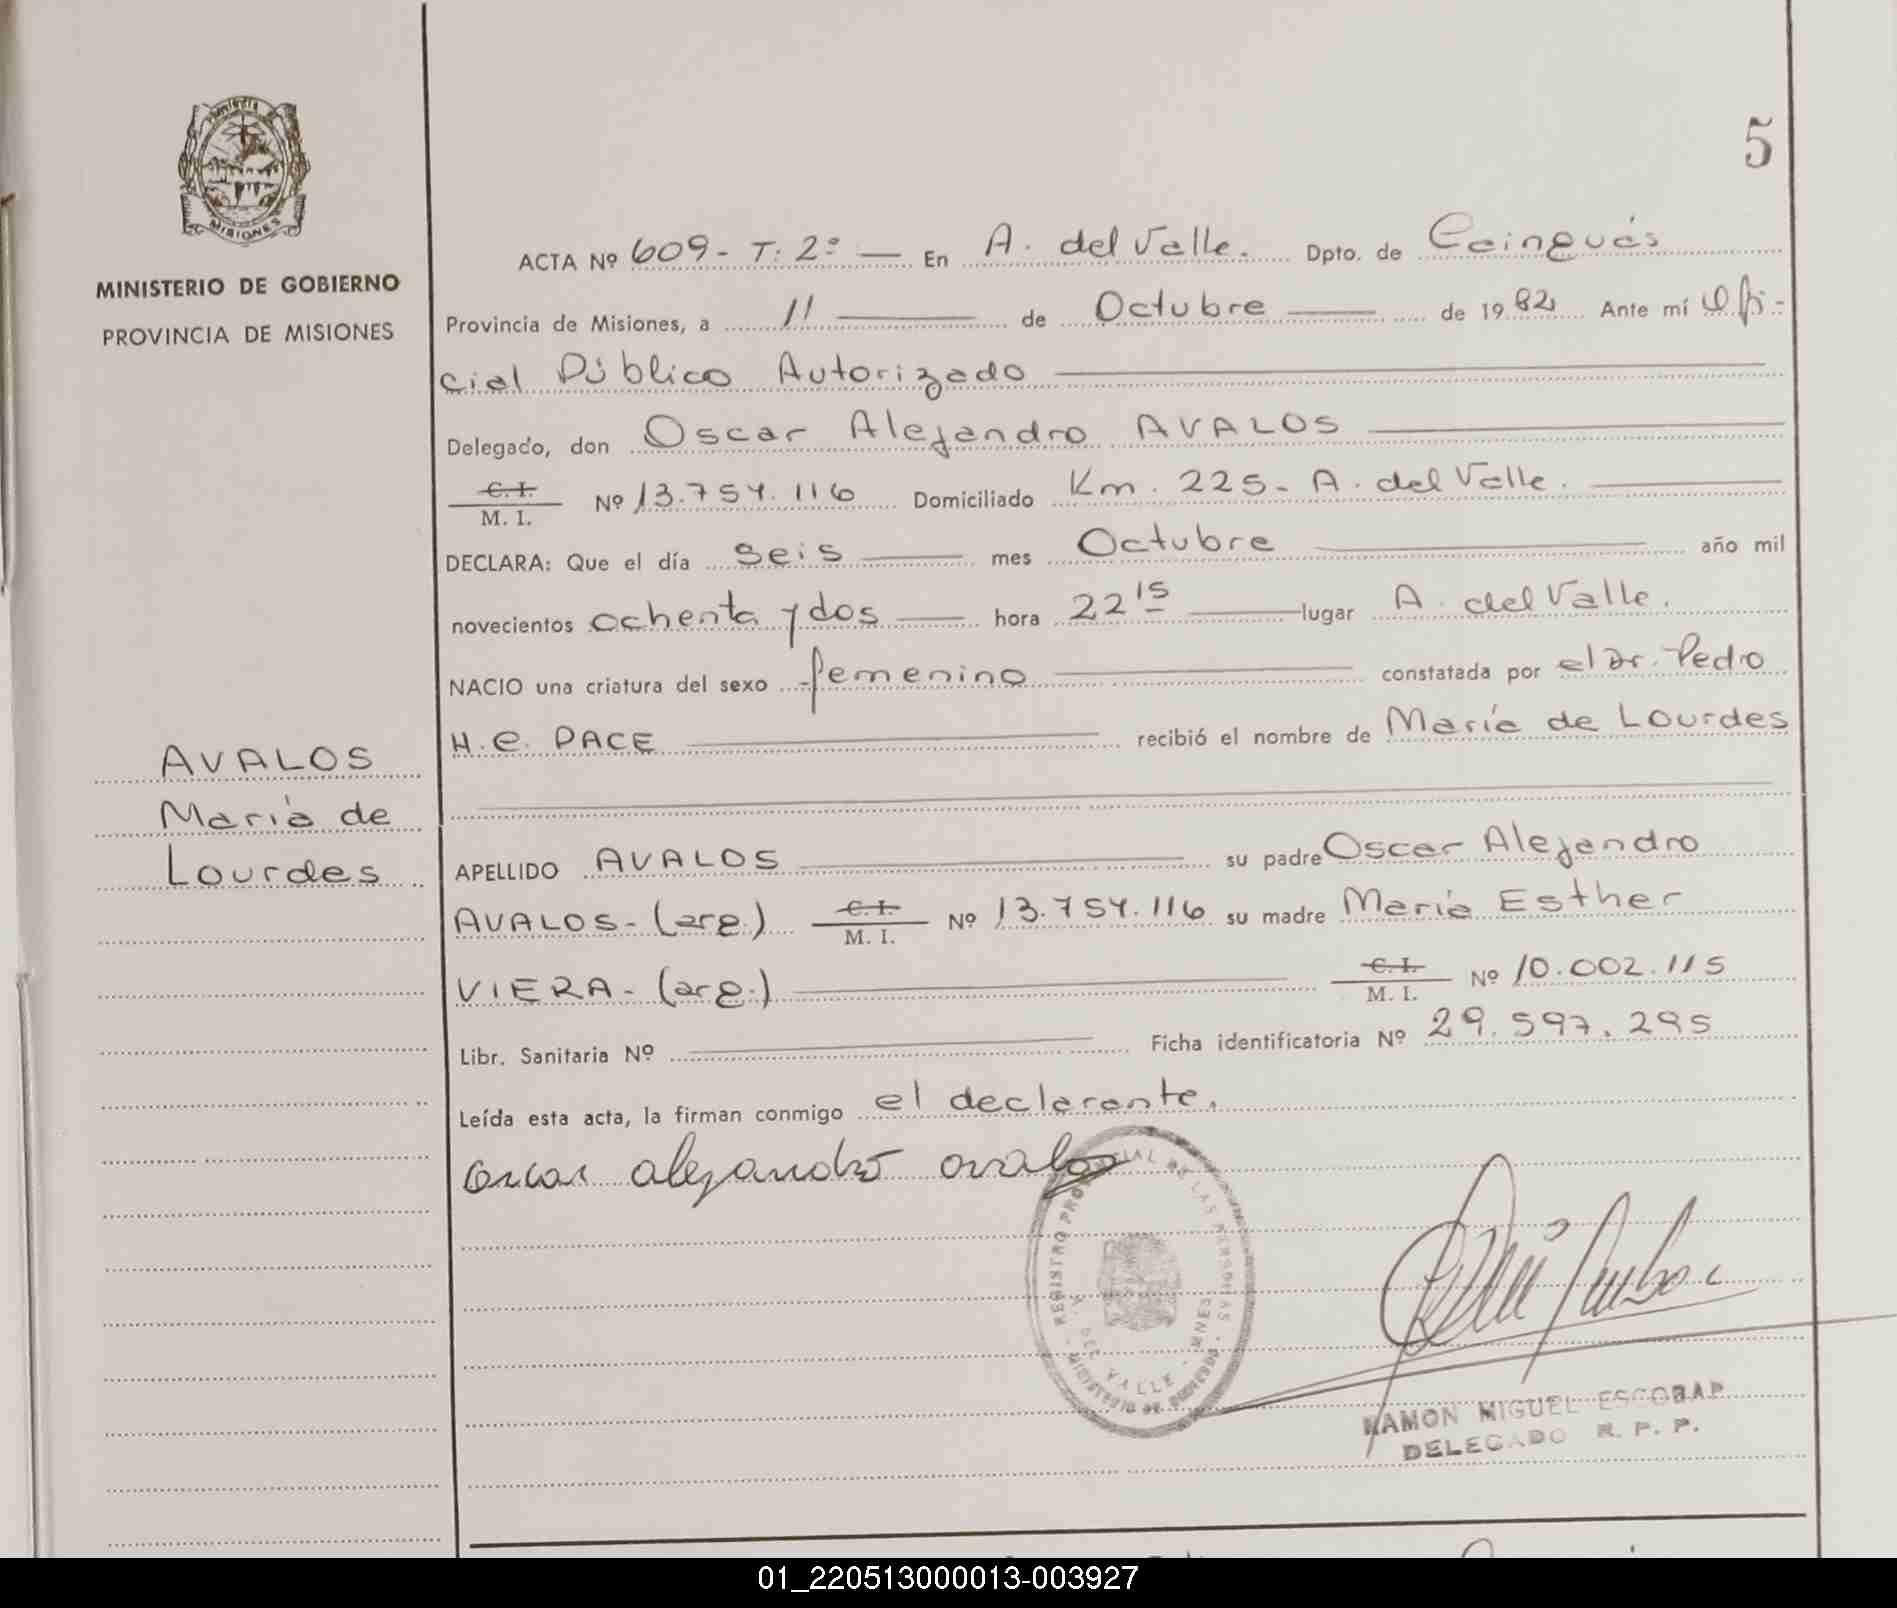 5
MINISTERIO DE GOBIERNO
PROVINCIA DE MISIONES
ACTA Nº 609 - T: 2º — En A. del Valle. Dpto. de Cainguás
Provincia de Misiones, a 11 — de Octubre — de 1982 Ante mí Ofi-
cial Público Autorizado
Delegado, don Oscar Alejandro AVALOS
C.I. M. I. Nº 13.754.116 Domiciliado Km. 225 - A. del Valle.
DECLARA: Que el día seis — mes Octubre — año mil
novecientos ochenta y dos — hora 22 15 — lugar A. del Valle.
NACIO una criatura del sexo femenino — constatada por el Dr. Pedro
H. C. PACE — recibió el nombre de María de Lourdes
AVALOS
María de
Lourdes
APELLIDO AVALOS — su padre Oscar Alejandro
AVALOS - (arg.) C.I. M. I. Nº 13.754.116 su madre María Esther
VIERA - (arg.) — C.I. M. I. Nº 10.002.115
Libr. Sanitaria Nº — Ficha identificatoria Nº 29.597.295
Leída esta acta, la firman conmigo el declarante.
oscar alejandro avalos
REGISTRO PROVINCIAL DE LAS PERSONAS
MINISTERIO DE GOBIERNO
A. DEL VALLE - MNES
RAMON MIGUEL ESCOBAR
DELEGADO R. P. P.
01_220513000013-003927